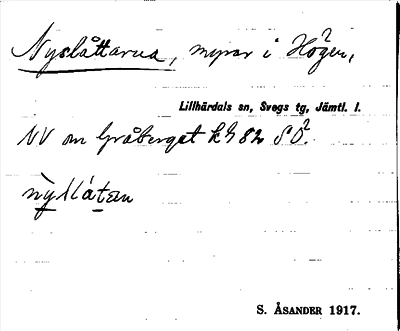 Nyslåttarna, myrar i Högen,
Lillhärdals sn, Svegs tg, Jämtl. l.
NV om Gråberget k 982 SÖ.
S. ÅSANDER 1917.